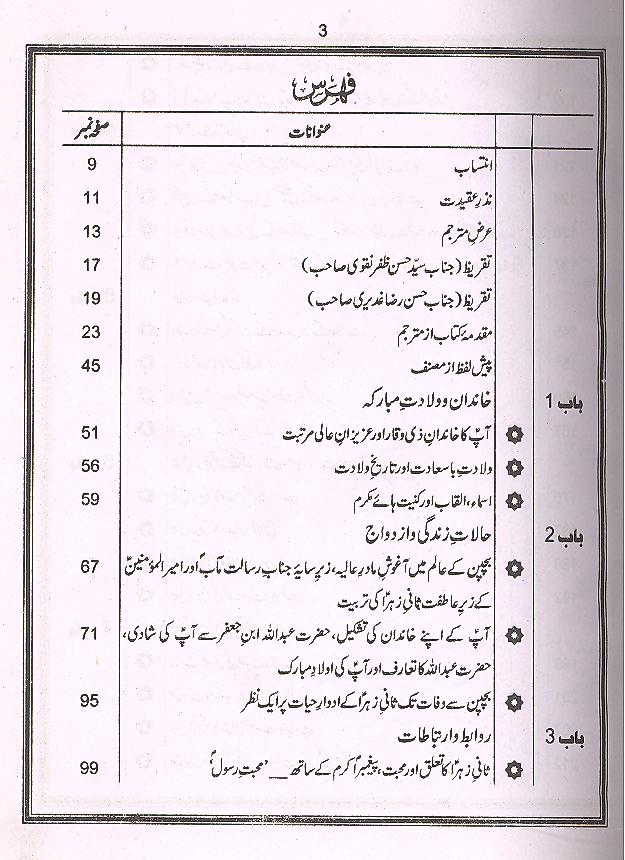 3
فہرس
عنوانات صفحہ نمبر
انتساب 9
نذرِ عقیدت 11
عرضِ مترجم 13
تقریظ (جناب سیّد حسن ظفر نقوی صاحب) 17
تقریظ (جناب حسن رضا غدیری صاحب) 19
مقدمۂ کتاب از مترجم 23
پیش لفظ از مصنف 45
باب 1 خاندان و ولادتِ مبارکہ
آپؑ کا خاندانِ ذی وقار اور عزیزانِ عالی مرتبت 51
ولادتِ باسعادت اور تاریخِ ولادت 56
اسماء، القاب اور کنیت ہائے مکرم 59
باب 2 حالاتِ زندگی و ازدواج
بچپن کے عالم میں آغوشِ مادرِ عالیہ، زیرِ سایۂ جنابِ رسالت مآبؐ اور امیر المؤمنینؑ 67
کے زیرِ عاطفت ثانیِ زہراؑ کی تربیت
آپؑ کے اپنے خاندان کی تشکیل، حضرت عبداللہ ابنِ جعفر سے آپؑ کی شادی، 71
حضرت عبداللہ کا تعارف اور آپؑ کی اولادِ مبارک
بچپن سے وفات تک ثانیِ زہراؑ کے ادوارِ حیات پر ایک نظر 95
باب 3 روابط و ارتباطات
ثانیِ زہراؑ کا تعلق اور محبت، پیغمبرِ اکرمؐ کے ساتھ __ ’محبتِ رسولؐ‘ 99